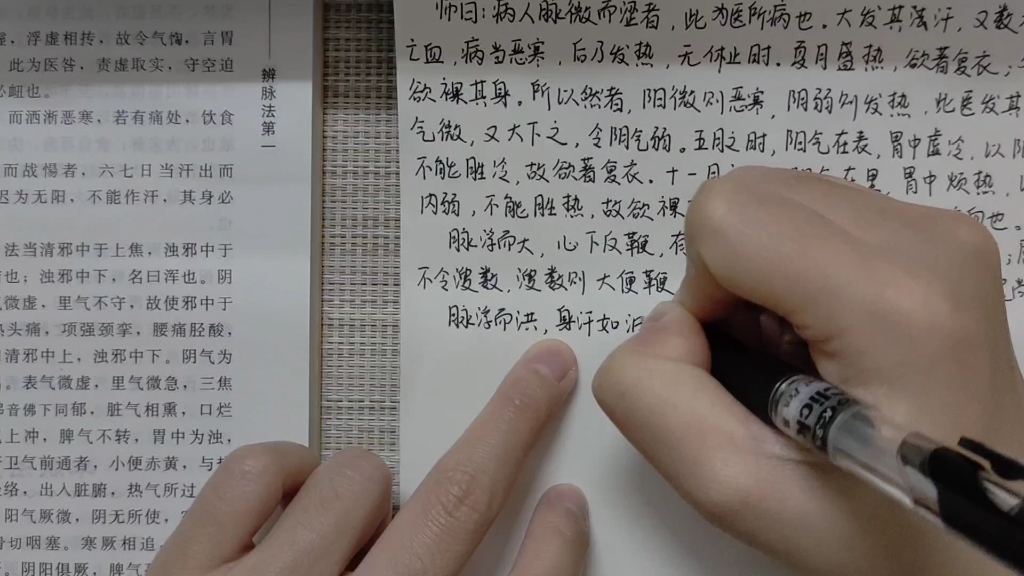 虚，浮虚相抟，故令气𫫇，言胃
此为医咎，责虚取实，守空迫
必衄也。
而洒淅恶寒，若有痛处，饮食
而战惕者，六七日当汗出而
迟为无阳，不能作汗，其身必
法当清邪中于上焦，浊邪中于
也；浊邪中下，名曰浑也。阴
气微虚，里气不守，故使邪中于
热头痛，项强颈挛，腰痛胫酸，
清邪中上，浊邪中下。阴气为
表气微虚，里气微急，三焦
怫下同郁，脏气相熏，口烂
上冲，脾气不转，胃中为浊，
卫气前通者，小便赤黄，与
络，出入脏腑，热气所过
阳气厥微，阴无所使，
切咽塞。寒厥相追
阴阳俱厥，脾气
辨脉法第一
师曰：病人脉微而涩者，此为医所病也。大发其法汗，又数
亡血，病当恶寒，后乃发热，无休止时。夏月盛热，欲著复衣，
欲裸其身。所以然者，阳微则恶寒，阴弱则发热，此医发其
气微，又大下之，令阴气弱。五月之时，阳气在表，胃中虚冷，以阳
不能胜冷，故欲著复衣。十一月之 阳气在里，胃中烦热，
内弱，不能胜热，故欲裸 也。
脉浮而大，心下反鞕，有
不令溲数，溲数则大便鞕
脉浮而洪，身汗如油
nic